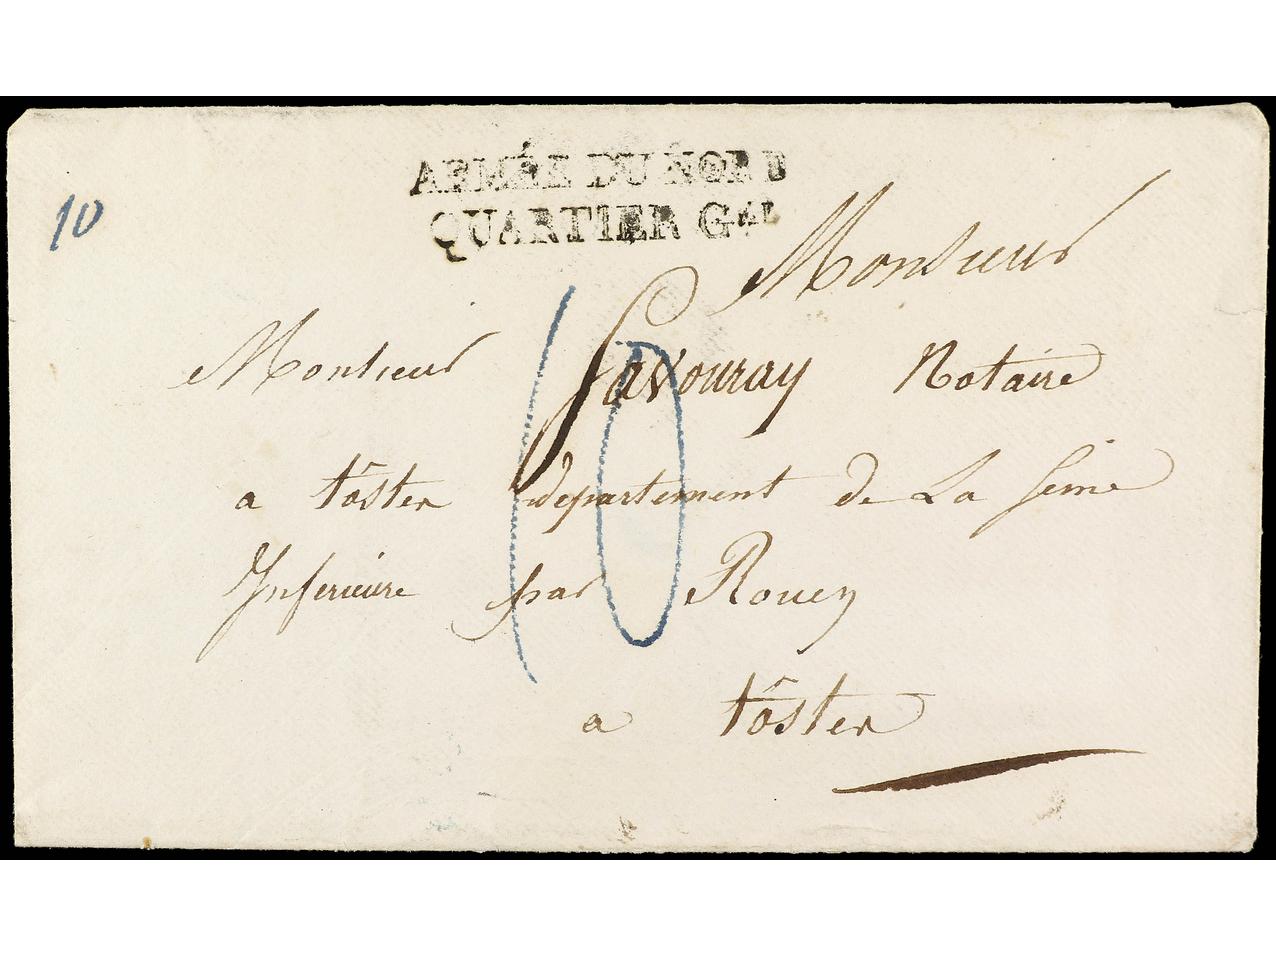 ARMÉE DU NORD
QUARTIER GAL
10
Monsieur
Monsieur Gavouray Notaire
a tôster departement de La Seine
Inferieure par Rouen
a tôster
10